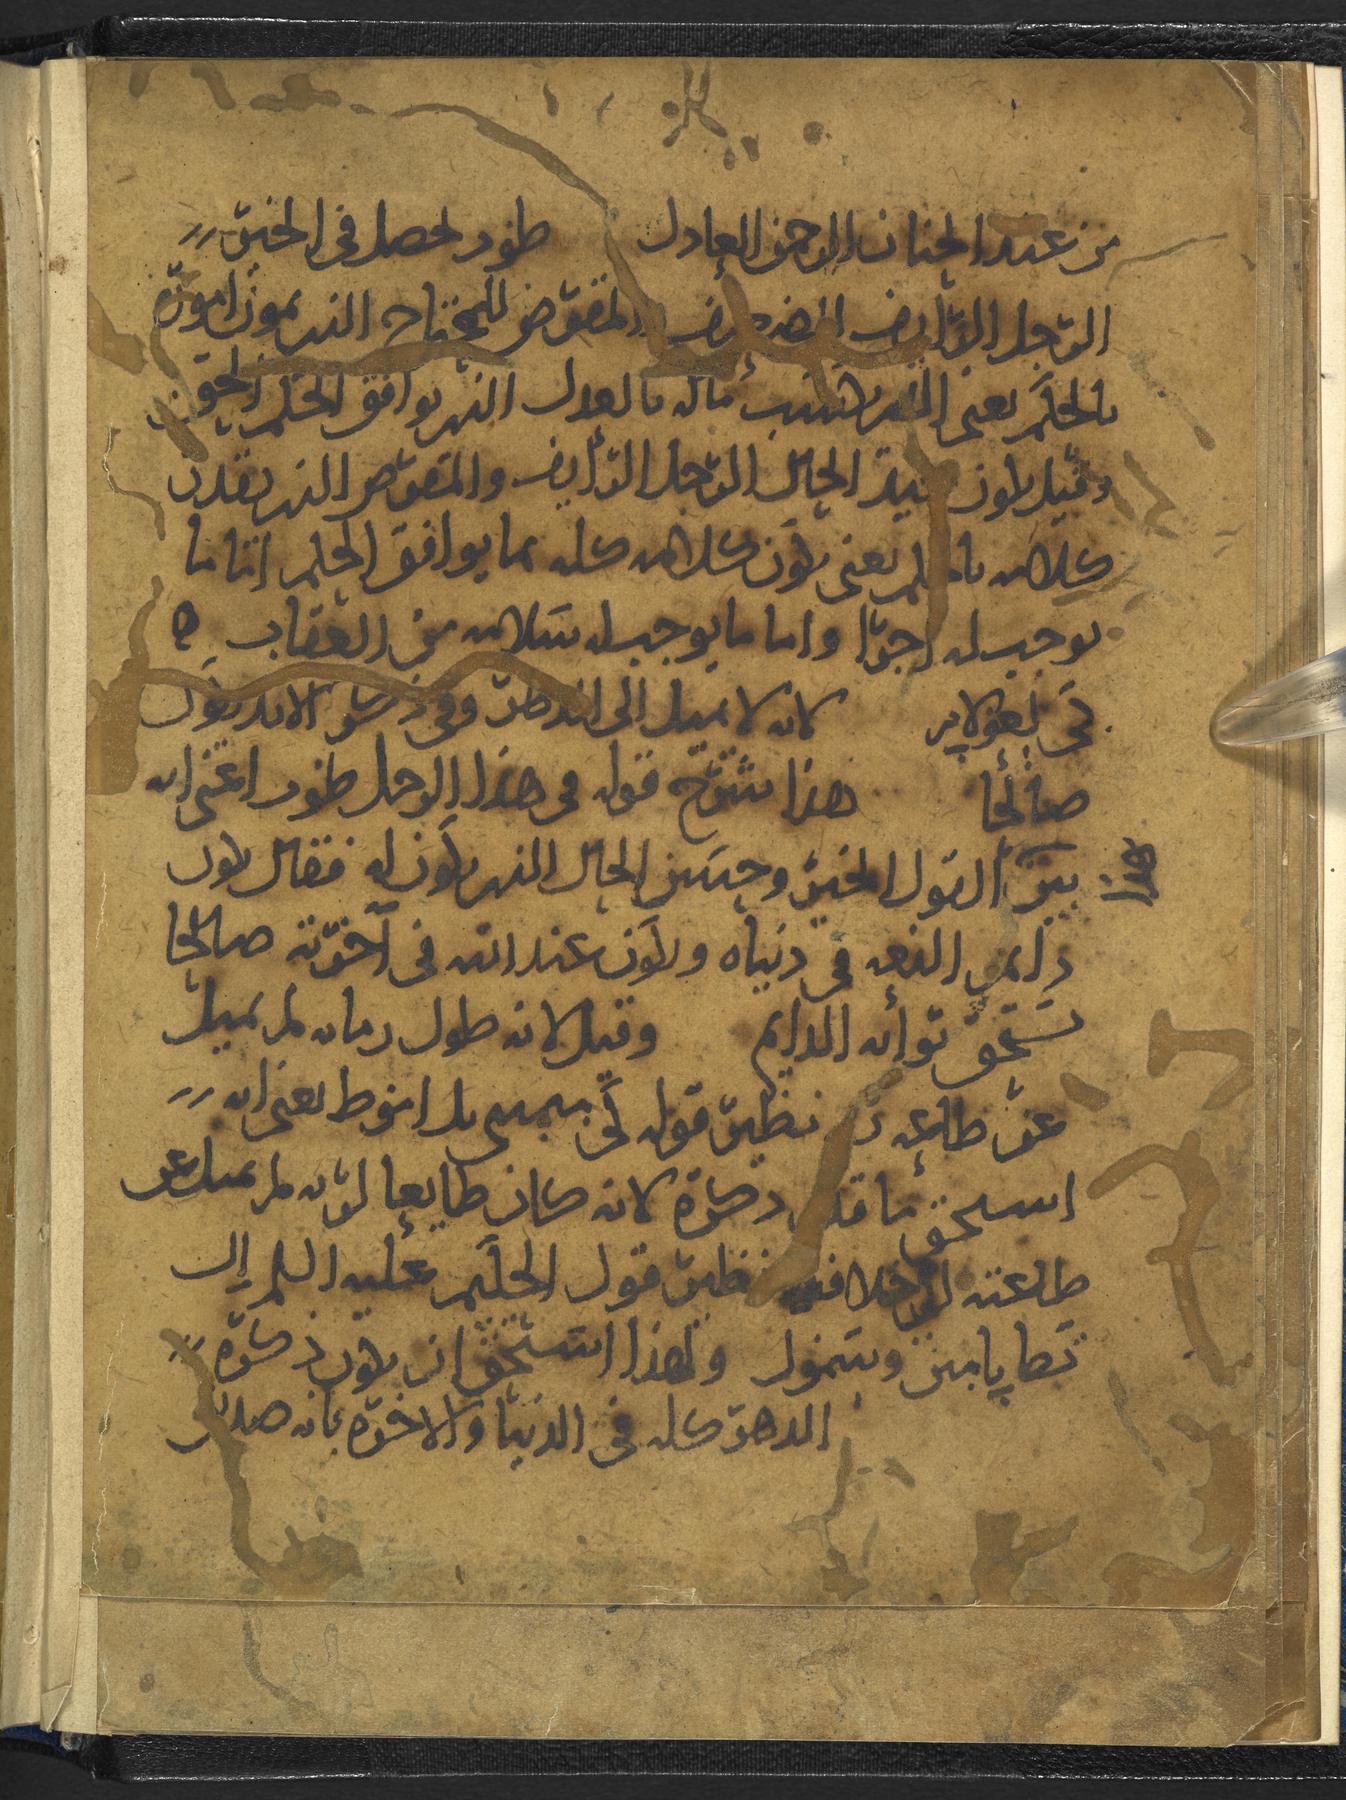 من عند الحنان الرحمن العادل طوبه لحصل في الخير
الرجل الرايف الضعيف المقرض للمحتاج الذي يمون امورَه
بالحكم يعني الذي يكتسب ماله بالعدل الذي يوافق الحكم الحق
وقيل يكون جيد الحال الرجل الرايف والمقرض الذي يقدر
كلامه بالحكم يعني يكون كلامه كله بما يوافق الحكم اما ما
يوجب له اجرًا واما ما يوجب له سلامه من العقاب
كي لعولام لانه لا يميل الى وفي ذكر الابد يكون
صالحا هذا شرح قوله في هذا الرجل طوبه اعني انه
بين القول الخير وحسن الحال الذي يكون له فقال يكون
دايم النعمه في دنياه ويكون عند الله في آخرته صالحا
يستحق ثوابه الدايم وقيل لانه طول زمانه لم يميل
عن طاعه نظير قوله كي بل امُوط يعني انه
استحق ما قدم ذكره لانه كان طايعا لربه لم يميل عن
طاعته الى خلافه نظير قول الحكيم عليه السلم ال
تط يامين وسمول ولهذا استحق ان يكون ذكره
الدهر كله في الدنيا والاخره بانه صديق